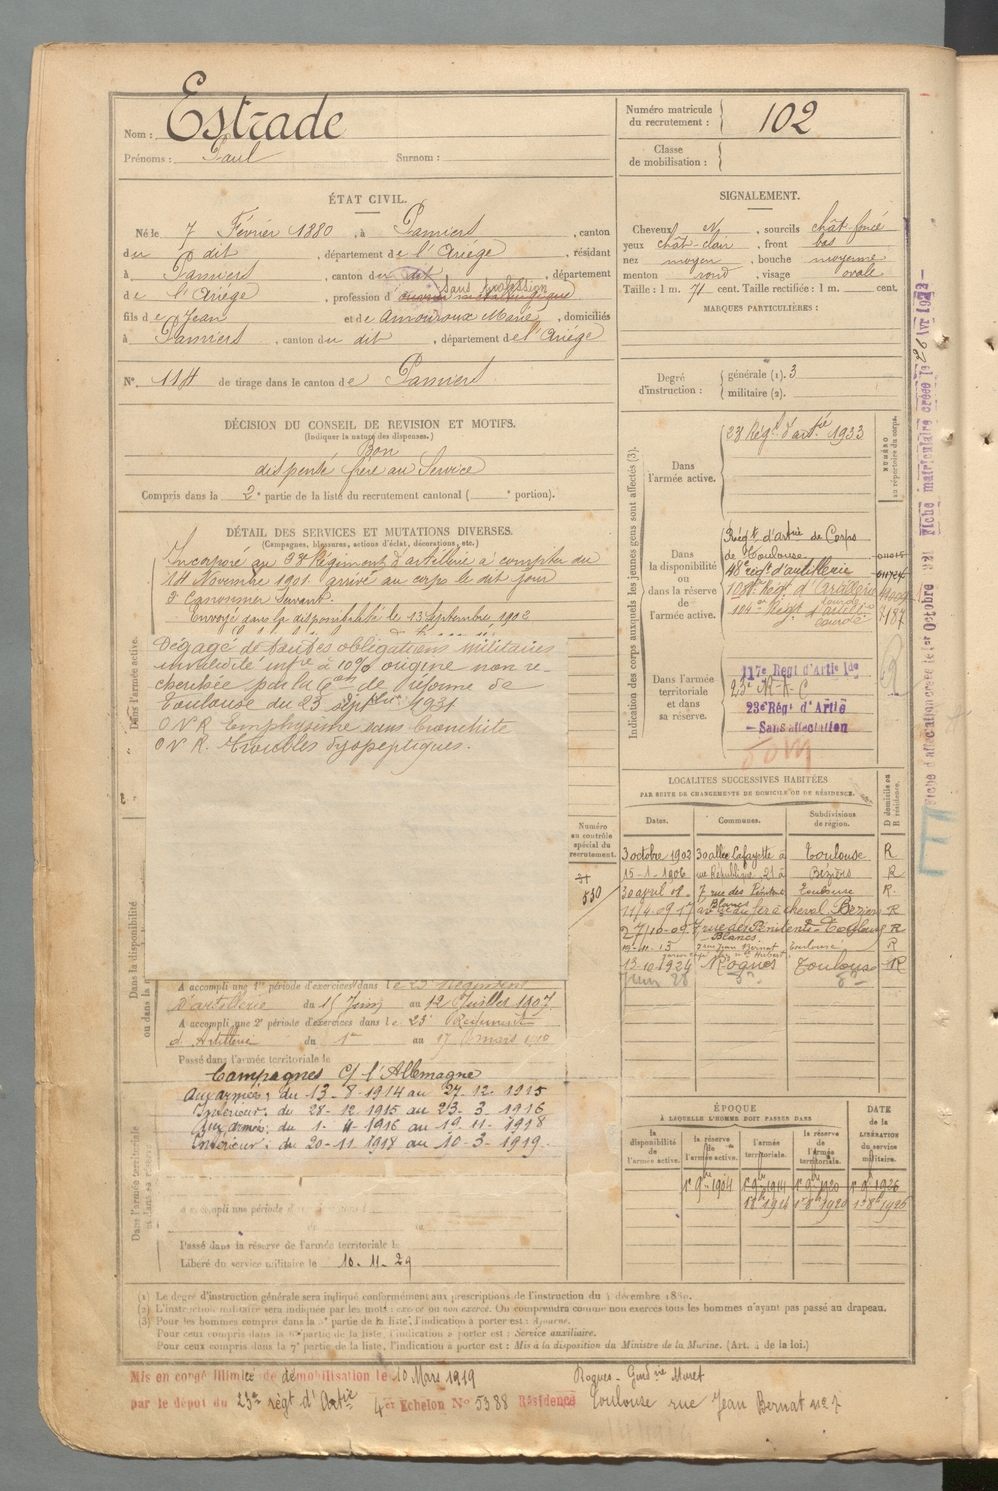 Nom : Estrade
Prénoms : Paul Surnom :
Numéro matricule
du recrutement : 102
Classe
de mobilisation :
ÉTAT CIVIL.
Né le 7 Février 1880, à Pamiers, canton
du dit, département de l'Ariége, résidant
à Pamiers, canton du dit, département
sans profession
de l'Ariége, profession d'ouvrier métallurgique
fils de Jean et de Amouroux Marie, domiciliés
à Pamiers, canton du dit, département de l'Ariége
N° 114 de tirage dans le canton de Pamiers
SIGNALEMENT.
Cheveux N, sourcils chât-foncé
yeux chât-clair, front bas
nez moyen, bouche moyenne
menton rond, visage ovale
Taille : 1 m. 71 cent. Taille rectifiée : 1 m. cent.
MARQUES PARTICULIÈRES :
Degré
d'instruction :
générale (1). 3
militaire (2).
DÉCISION DU CONSEIL DE REVISION ET MOTIFS.
(Indiquer la nature des dispenses.)
Bon
dispensé frère au Service
Compris dans la 2e partie de la liste du recrutement cantonal ( e portion).
DÉTAIL DES SERVICES ET MUTATIONS DIVERSES.
(Campagnes, blessures, actions d'éclat, décorations, etc.)
Incorporé au 23e Régiment d'artillerie à compter du
14 Novembre 1901 arrivé au corps le dit jour
2e Canonnier Servant.
Envoyé dans la disponibilité le 13 Septembre 1902
Dégagé de toutes obligations militaires
invalidité infre à 10% origine non re-
cherchée par la Con de Réforme de
Toulouse du 23 septbre 1931
O N R Emphysème sans bronchite
O N R. Troubles dyspeptiques.
Dans l'armée active.
Dans la disponibilité
ou dans la
Numéro
au contrôle
spécial du
recrutement.
530
A accompli une 1re période d'exercices dans le 23 Régiment
d'artillerie du 15 Juin au 12 Juillet 1907.
A accompli une 2e période d'exercices dans le 23e Régiment
d'Artillerie du 1er au 17 mars 1910
Passé dans l'armée territoriale le
Campagnes C/ l'Allemagne
Aux armées : du 13-8-1914 au 27-12-1915
Intérieur : du 28-12-1915 au 23-3-1916
Aux armées : du 1-4-1916 au 19-11-1918
Intérieur : du 20-11-1918 au 10-3-1919.
Dans l'armée territoriale
A accompli une période d'
Passé dans la réserve de l'armée territoriale le
Libéré du service militaire le 10-11-29
Indication des corps auxquels les jeunes gens sont affectés (3).
NUMÉRO
au répertoire du corps.
Dans
l'armée active.
23 Régt d'artie 1933
Dans
la disponibilité
ou
dans la réserve
de
l'armée active.
3 régt d'artie de Corps
de Toulouse
48e régt d'artillerie
Dans l'armée
territoriale
et dans
sa réserve.
117e Regt d'Artie lde
23e
23e Régt d'Artie
— Sans affectation
LOCALITÉS SUCCESSIVES HABITÉES
PAR SUITE DE CHANGEMENTS DE DOMICILE OU DE RÉSIDENCE.
D domicile ou
R résidence.
Dates. Communes. Subdivisions
de région.
3 octobre 1902 30 allée Lafayette à Toulouse R
15-1-1906 rue République 21 à Béziers R
30 avril 08 7 rue des Pénitents Blancs Toulouse R.
11/4-09 17 av. du fer à cheval Béziers R
27/10-09 7 rue des Pénitents Blancs Toulouse R
19-11-13 7 rue Jean Bernat Toulouse R
13-10-1924 Roques Toulouse R
Juin 28 do do
ÉPOQUE
À LAQUELLE L'HOMME DOIT PASSER DANS
la
disponibilité
de
l'armée active.
la réserve
de
l'armée active.
l'armée
territoriale.
la réserve
de
l'armée
territoriale.
DATE
de la
LIBÉRATION
du service
militaire.
1er 9bre 1904 1er 9bre 1914 1er 9bre 1920 1er 9bre 1926
(1) Le degré d'instruction générale sera indiqué conformément aux prescriptions de l'instruction du 4 décembre 1889.
(2) L'instruction militaire sera indiquée par les mots : exercé ou non exercé. On comprendra comme non exercés tous les hommes n'ayant pas passé au drapeau.
(3) Pour les hommes compris dans la 5e partie de la liste, l'indication à porter est : Ajourné.
Pour ceux compris dans la 6e partie de la liste, l'indication à porter est : Service auxiliaire.
Pour ceux compris dans la 7e partie de la liste, l'indication à porter est : Mis à la disposition du Ministre de la Marine. (Art. 4 de la loi.)
Mis en congé illimité de démobilisation le 10 Mars 1919
par le dépot du 23e régt d'Artie 4e Echelon No 5388 Résidence Toulouse rue Jean Bernat no 7